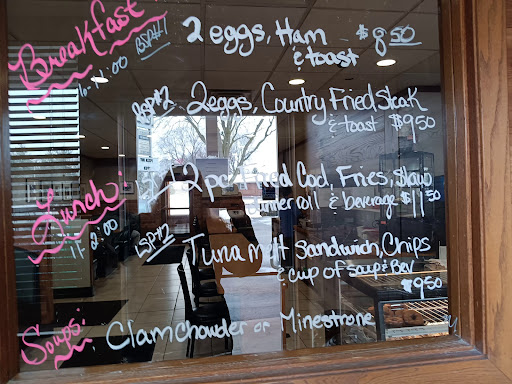 Breakfast
6-11:00
BSP#1
2 eggs, Ham
& toast
$8.50
BSP#2
2 eggs, Country Fried Steak
& toast $9.50
Lunch:
11-2:00
2 pc. Fried Cod, Fries, slaw
dinner roll & beverage $11.50
LSP#2
Tuna melt sandwich, Chips
& cup of soup & Bev
$9.50
Soups:
Clam chowder or Minestrone